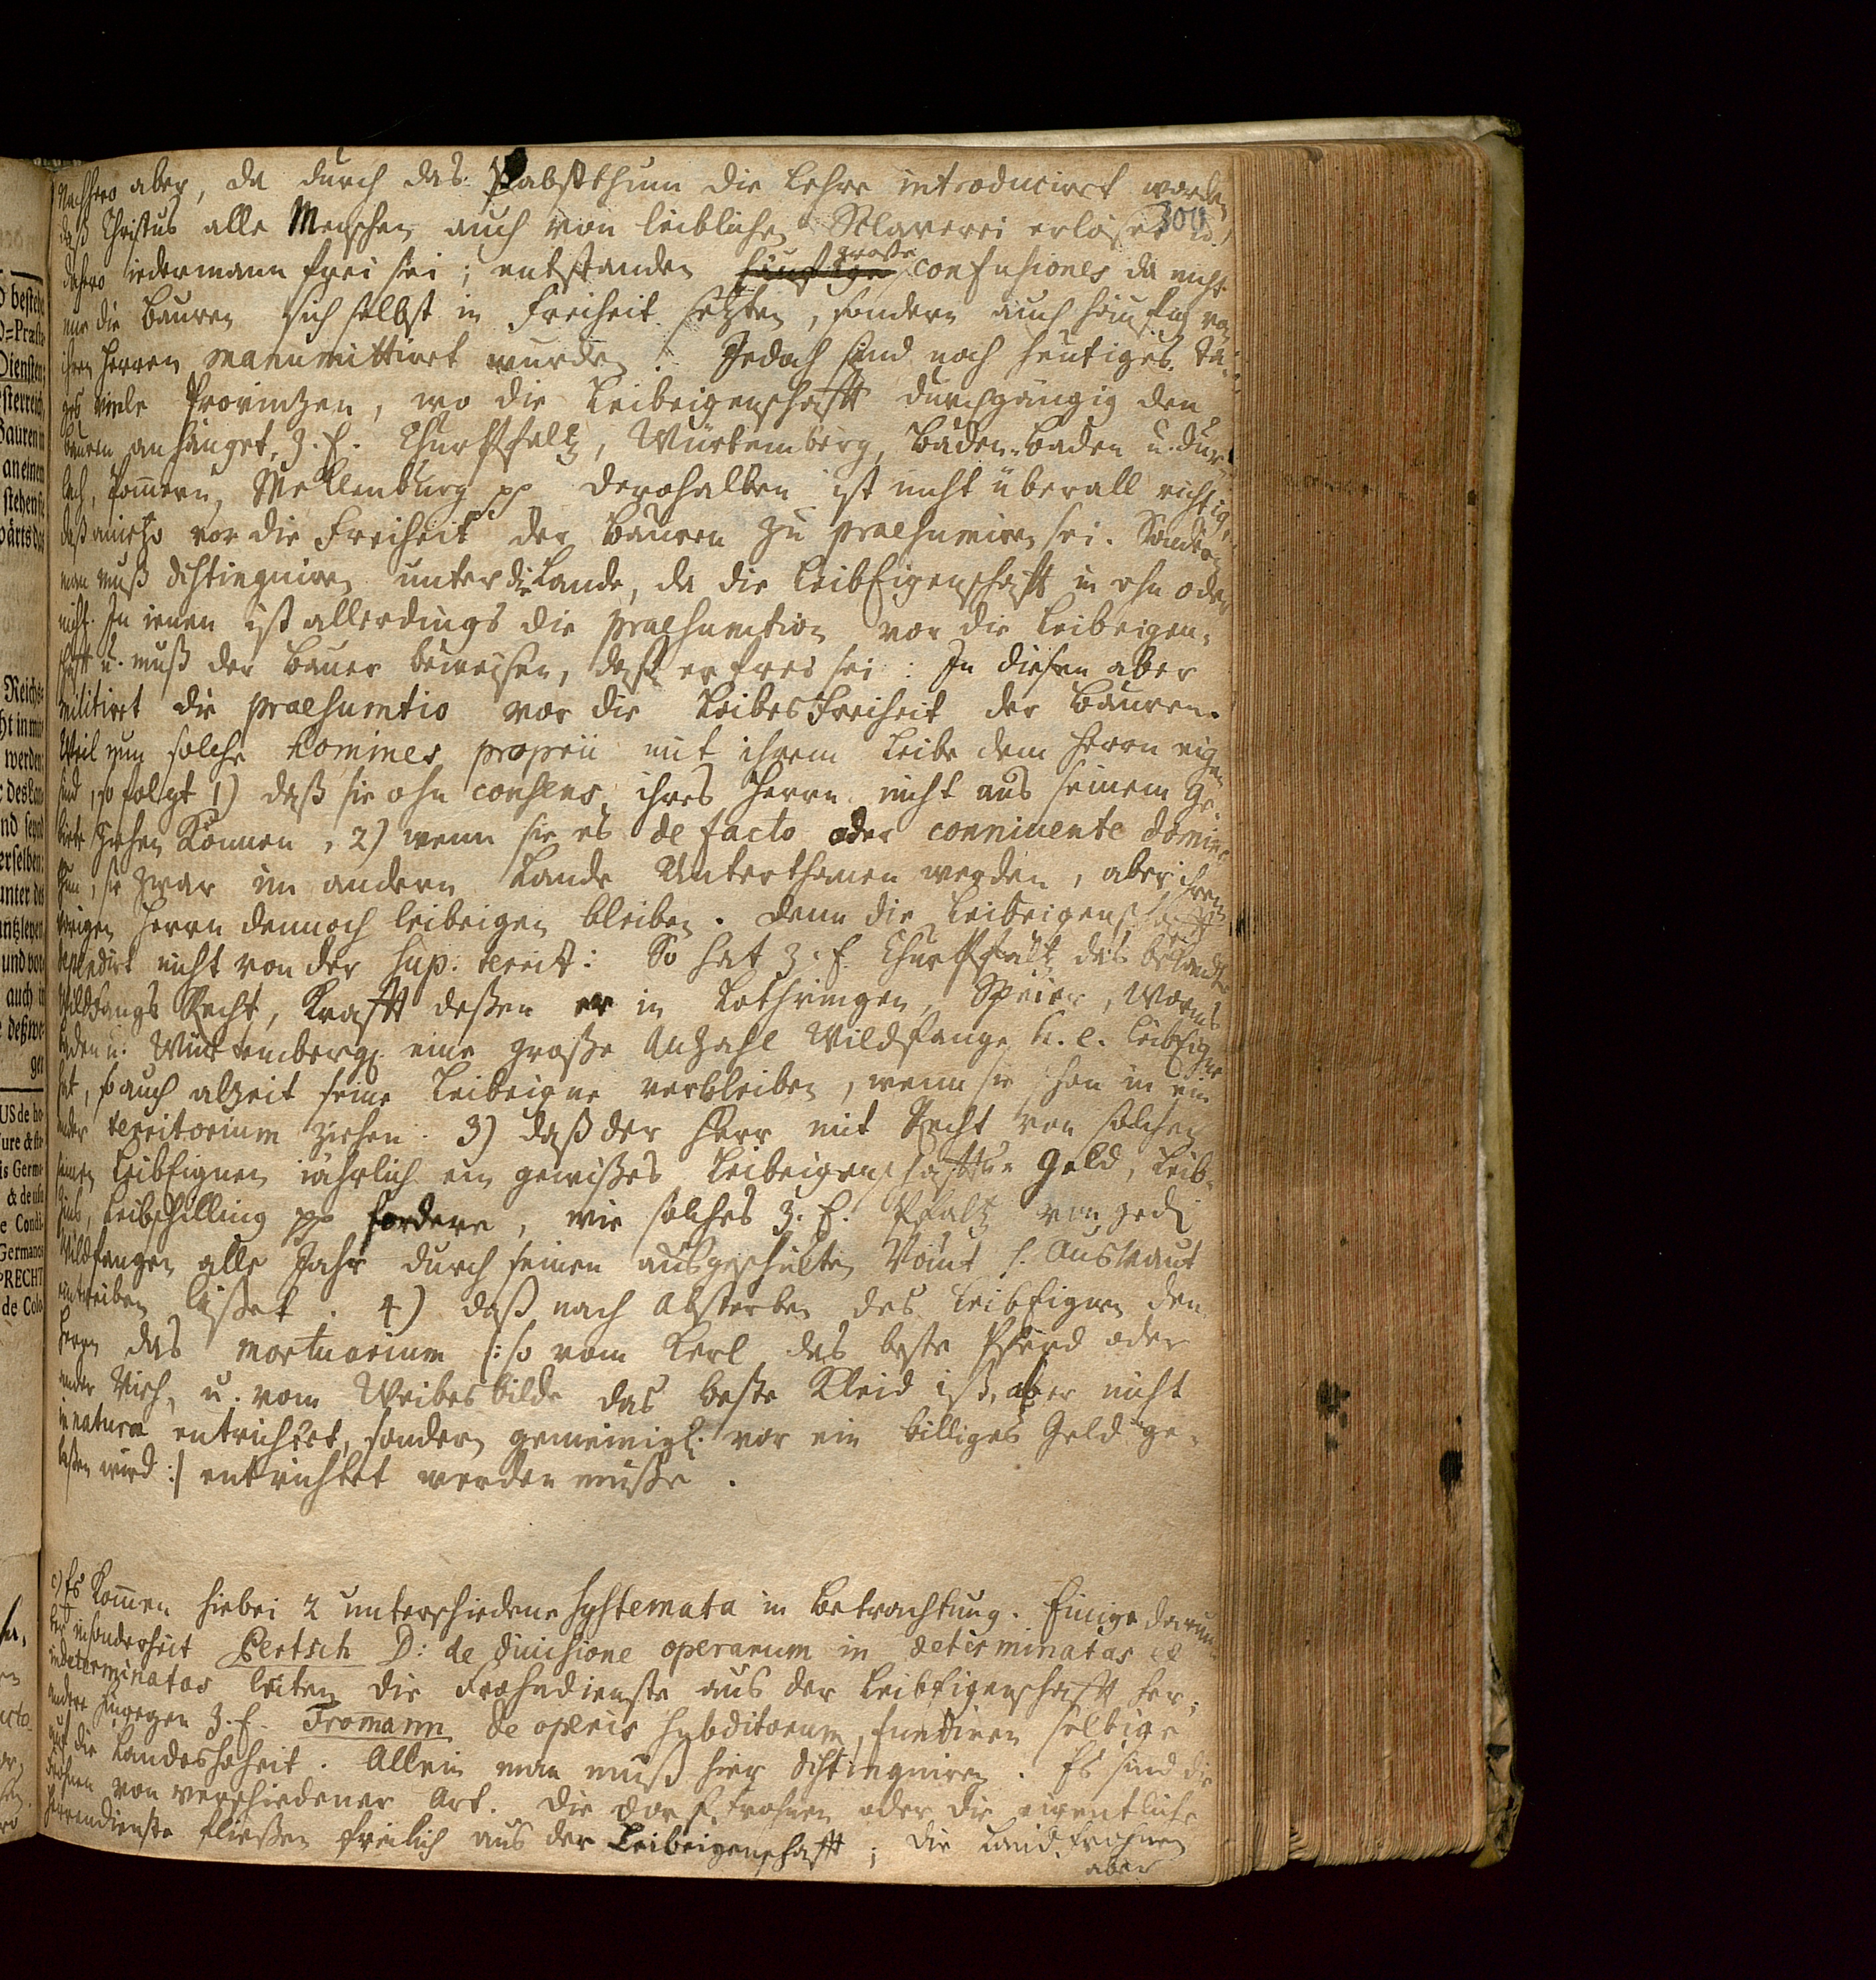 Nachhero aber, da durch das Pabstthum die Lehre introduciret worden
300
daß Christus alle Menschen auch von leiblicher Sklaverei erlöset u.
dahero iedermann frei sei; entstanden häufige große confusiones da nicht
nur die Bauren sich selbst in Freiheit setzten, sondern auch häufig von
ihren Herren manumittiret wurden. Jedoch sind noch heutiges Ta-
ges viele Provintzen, wo die Leibeigenschafft durchgängig den
Bauren anhänget, z. E. Churpfaltz, Würtemberg, Baden-Baden u. Dur-
lach, Pommern, Meklenburg pp derohalben ist nicht überall richtig,
daß anietzo vor die Freiheit der Bauren zu praesumiren sei. Sondern
man muß distinguiren unter die Lande, da die LeibEigenschafft in ohn oder
nicht. In ienen ist allerdings die praesumtion vor die Leibeigen-
schafft u. muß der Bauer beweisen, daß er frei sei: In diesen aber
militiret die praesumtio vor die LeibesFreiheit der Bauren.
Weil nun solche homines proprii mit ihrem Leibe dem Herrn eigen
sind, so folgt 1) daß sie ohn consens ihres Herrn nicht aus seinem Ge-
biete ziehen können, 2) wenn sie es de facto oder connivente domino
thun, sie zwar im andern Lande Unterthanen werden, aber ihrem
vorigen Herrn dennoch leibeigen bleiben. denn die Leibeigenschafft
dependirt nicht von der sup: territ: So hat z. E. Churpfaltz das bekandte
Wildfangs Recht, Krafft deßen er in Lothringen, Speier, Worms
Baden u. Würtemberg eine große Anzahl Wildfange h. e. LeibEigne
hat, so auch alzeit seine Leibeigne verbleiben, wenn sie schon in ein
ander territorium ziehen. 3) daß der Herr mit Recht von solchen
seinen LeibEignen iährlich ein gewißes Leibeigenschaffts Geld, Leib-
zins, Leibschilling pp fordere, wie solches z. E. Pfaltz von ged.
Wildfangen alle Jahr durch seinen ausgeschickten Vaut s. Ausvaut
eintreiben läßet. 4) daß nach Absterben des LeibEignen den
Herrn das mortuarium /: so vom Kerl das beste Pferd oder
ander Vieh, u. vom Weibesbilde das beste Kleid ist, aber nicht
in natura entrichtet, sondern gemeinigl. vor ein billiges Geld ge-
laßen wird :/ entrichtet werden müsse.
c) Es kommen hiebei 2 unterschiedene systemata in Betrachtung. Einige darun-
ter insonderheit Pertsch D: de divisione operarum in determinatas et
indeterminatas leiten die Frohndienste aus der LeibEigenschafft her,
andere hingegen z. E. Fromann de operis subditorum, fundiren selbige
auf die Landeshoheit. Allein man muß hier distinguiren. Es sind die
Frohnen von verschiedener Art. Die Dorffrohnen oder die eigentliche
Herrendienste fließen freilich aus der Leibeigenschafft; die Landfrohnen
aber